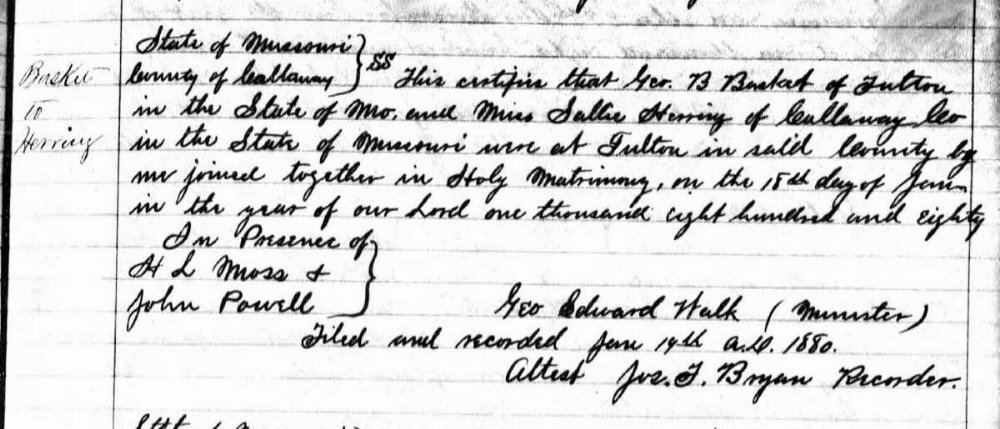 Basket
To
Herring
State of Missouri
County of Callaway } SS This certifies that Geo. B Basket of Fulton
in the State of Mo. and Miss Sallie Herring of Callaway Co
in the State of Missouri were at Fulton in said County by
me joined together in Holy Matrimony, on the 15th day of Jan
in the year of our Lord one thousand eight hundred and Eighty
In Presence of
H L Moss &
John Powell
Geo Edward Walk (Minister)
Filed and recorded Jan 19th A.D. 1880.
Attest Jos. T. Bryan Recorder.